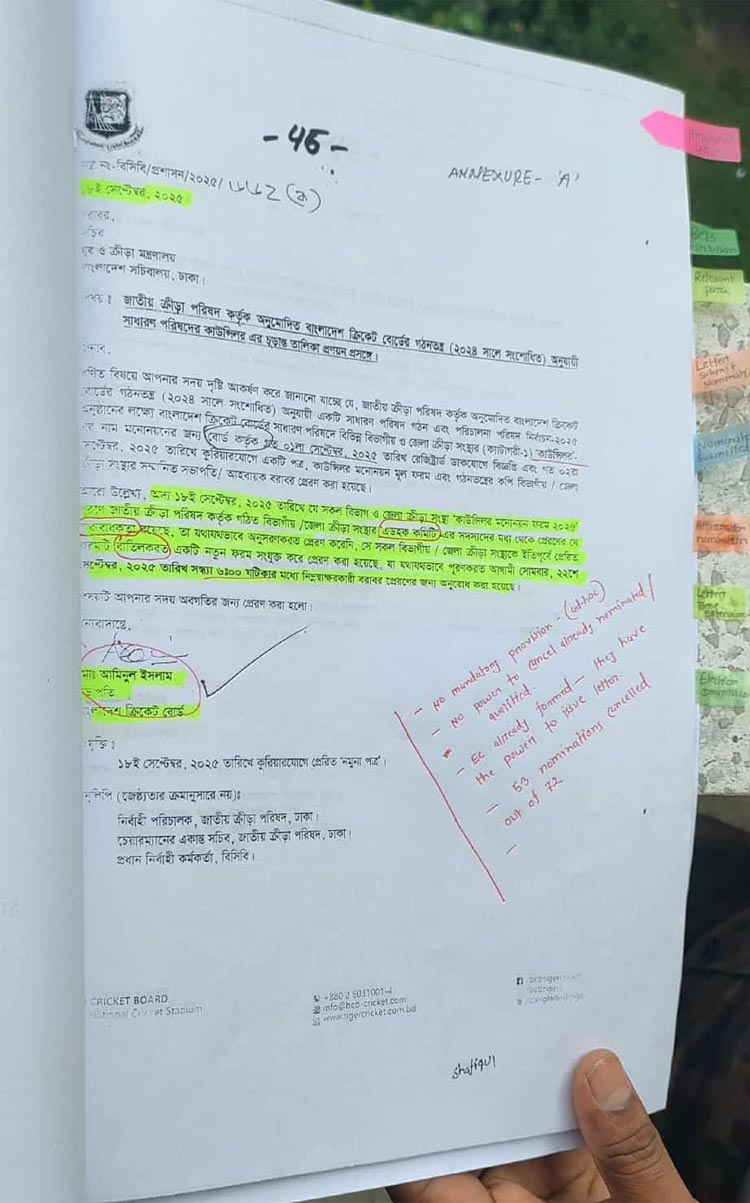 - 46 -
ANNEXURE - 'A'
নং-বিসিবি/প্রশাসন/২০২৫/
১৮ই সেপ্টেম্বর, ২০২৫
বরাবর,
সচিব
যুব ও ক্রীড়া মন্ত্রণালয়
বাংলাদেশ সচিবালয়, ঢাকা।
জাতীয় ক্রীড়া পরিষদ কর্তৃক অনুমোদিত বাংলাদেশ ক্রিকেট বোর্ডের গঠনতন্ত্র (২০২৪ সালে সংশোধিত) অনুযায়ী
সাধারণ পরিষদের কাউন্সিলর এর চূড়ান্ত তালিকা প্রণয়ন প্রসঙ্গে।
বিষয়ে আপনার সদয় দৃষ্টি আকর্ষণ করে জানানো যাচ্ছে যে, জাতীয় ক্রীড়া পরিষদ কর্তৃক অনুমোদিত বাংলাদেশ ক্রিকেট
বোর্ডের গঠনতন্ত্র (২০২৪ সালে সংশোধিত) অনুযায়ী একটি সাধারণ পরিষদ গঠন এবং পরিচালনা পরিষদ নির্বাচন-২০২৫
অনুষ্ঠানের লক্ষ্যে বাংলাদেশ ক্রিকেট বোর্ডের সাধারণ পরিষদে বিভিন্ন বিভাগীয় ও জেলা ক্রীড়া সংস্থার (ক্যাটাগরী-১) 'কাউন্সিলর'
নাম মনোনয়নের জন্য বোর্ড কর্তৃক গত ০১লা সেপ্টেম্বর, ২০২৫ তারিখ রেজিস্টার্ড ডাকযোগে বিজ্ঞপ্তি এবং গত ০২রা
সেপ্টেম্বর, ২০২৫ তারিখে কুরিয়ারযোগে একটি পত্র, কাউন্সিলর মনোনয়ন মূল ফরম এবং গঠনতন্ত্রের কপি বিভাগীয় / জেলা
ক্রীড়া সংস্থার সম্মানিত সভাপতি/ আহবায়ক বরাবর প্রেরণ করা হয়েছে।
আরো উল্লেখ্য, অদ্য ১৮ই সেপ্টেম্বর, ২০২৫ তারিখে যে সকল বিভাগ ও জেলা ক্রীড়া সংস্থা 'কাউন্সিলর মনোনয়ন ফরম ২০২৫'
জাতীয় ক্রীড়া পরিষদ কর্তৃক গঠিত বিভাগীয় /জেলা ক্রীড়া সংস্থার এডহক কমিটি এর সদস্যদের মধ্য থেকে প্রেরণের যে
বাধ্যবাধকতা রয়েছে, তা যথাযথভাবে অনুসরণকরত প্রেরণ করেনি, সে সকল বিভাগীয় / জেলা ক্রীড়া সংস্থাকে ইতিপূর্বে প্রেরিত
ফরমটি বাতিলকরত একটি নতুন ফরম সংযুক্ত করে প্রেরণ করা হয়েছে, যা যথাযথভাবে পূরণকরত আগামী সোমবার, ২২শে
সেপ্টেম্বর, ২০২৫ তারিখ সন্ধ্যা ৬:০০ ঘটিকার মধ্যে নিম্নস্বাক্ষরকারী বরাবর প্রেরণের জন্য অনুরোধ করা হয়েছে।
বিষয়টি আপনার সদয় অবগতির জন্য প্রেরণ করা হলো।
ধন্যবাদান্তে,
মোঃ আমিনুল ইসলাম
সভাপতি
বাংলাদেশ ক্রিকেট বোর্ড
- No mandatory provision - (ad-hoc)
- No power to cancel already nominated/
qualified.
- EC already formed - they have
the power to issue letter.
- 53 nominations cancelled
out of 72
-
১৮ই সেপ্টেম্বর, ২০২৫ তারিখে কুরিয়ারযোগে প্রেরিত 'নমুনা পত্র'।
অনুলিপি (জ্যেষ্ঠতার ক্রমানুসারে নয়)ঃ
নির্বাহী পরিচালক, জাতীয় ক্রীড়া পরিষদ, ঢাকা।
চেয়ারম্যানের একান্ত সচিব, জাতীয় ক্রীড়া পরিষদ, ঢাকা।
প্রধান নির্বাহী কর্মকর্তা, বিসিবি।
CRICKET BOARD
National Cricket Stadium
+880 2 8031001-4
info@bcb-cricket.com
www.tigercricket.com.bd
shafiqul
Relevant
Letter
Submit
Nomination
Letter
Time
Extension
Election